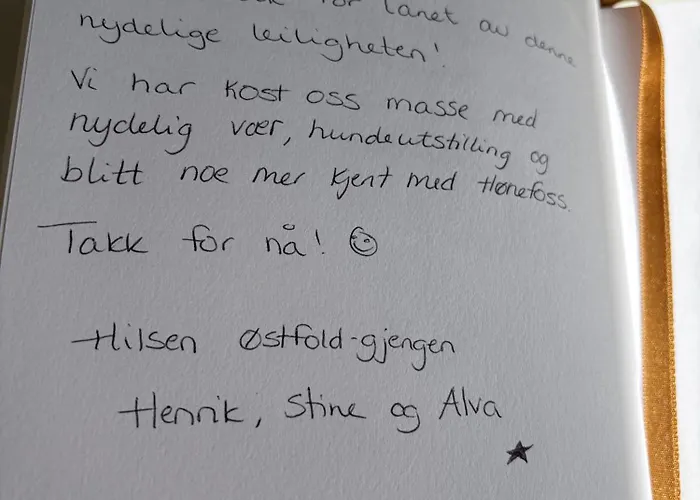 for lånet av denne
nydelige leiligheten!
Vi har kost oss masse med
nydelig vær, hundeutstilling og
blitt noe mer kjent med Hønefoss.
Takk for nå!
Hilsen Østfold-gjengen
Henrik, Stine og Alva